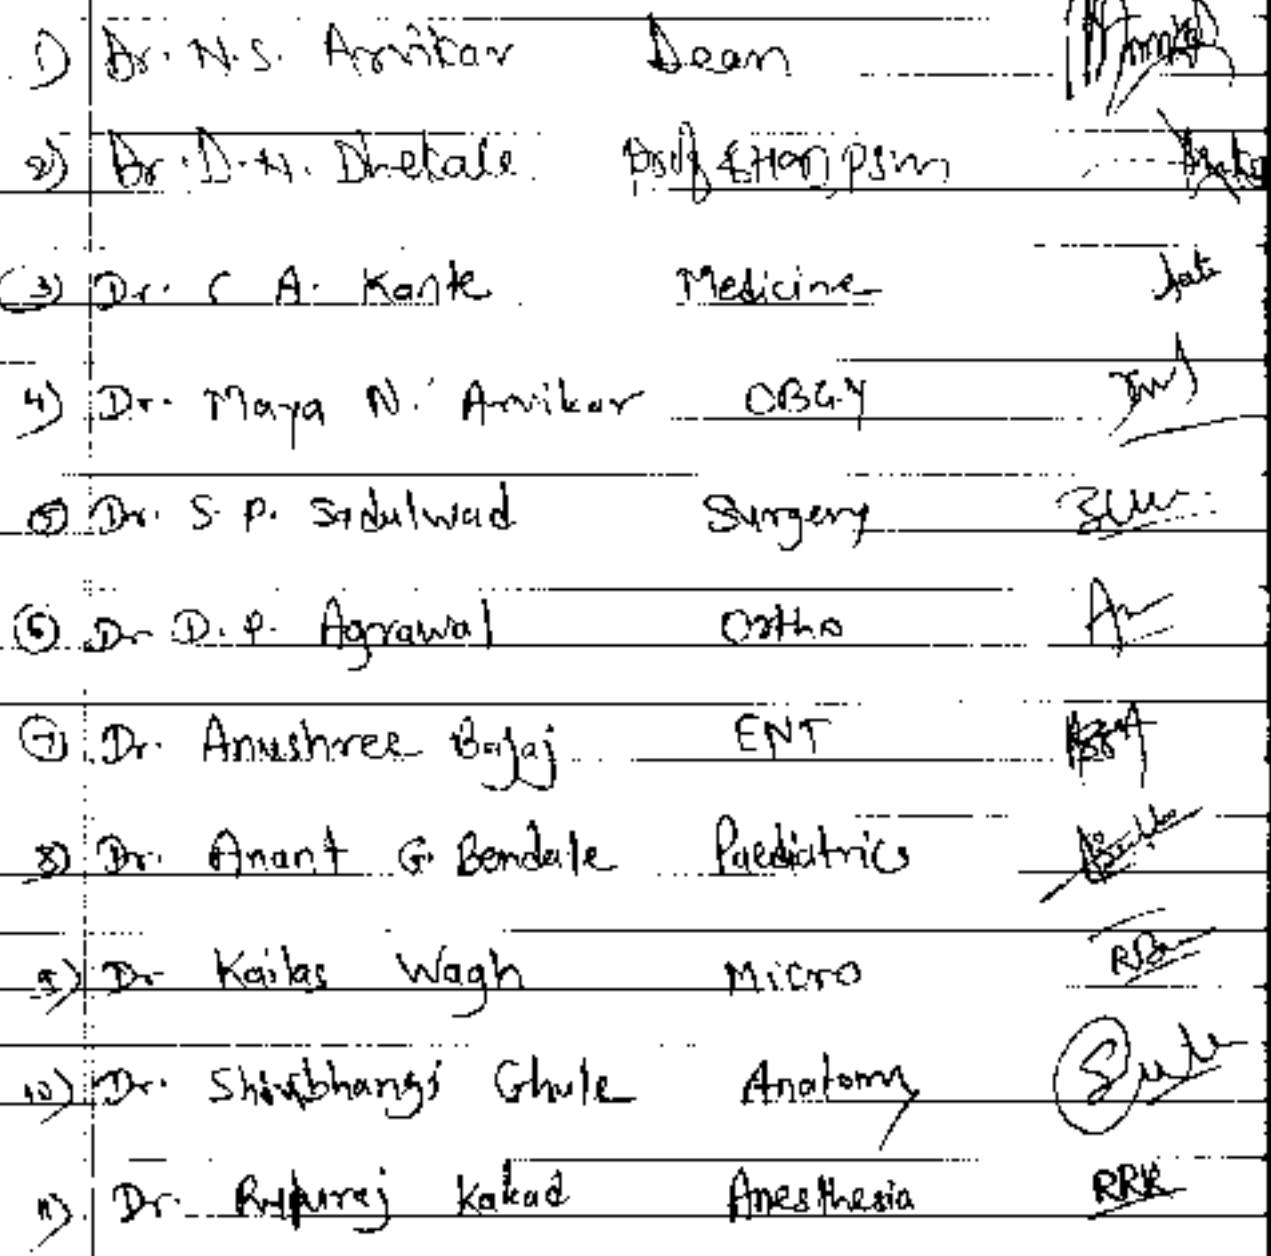 1) Dr. N.S. Arvikar Dean
2) Dr. D.N. Dhekale. Prof & HOD PSM
3) Dr. C A. Kante Medicine
4) Dr. Maya N. Arvikar OBGY
5) Dr. S. P. Sadulwad Surgery
6) Dr D. P. Agrawal Ortho
7) Dr. Anushree Bajaj ENT
8) Dr. Anant G. Bendale Paediatrics
9) Dr Kailas Wagh Micro
10) Dr. Ghule Anatomy
11) Dr. Kakad Anesthesia RRK